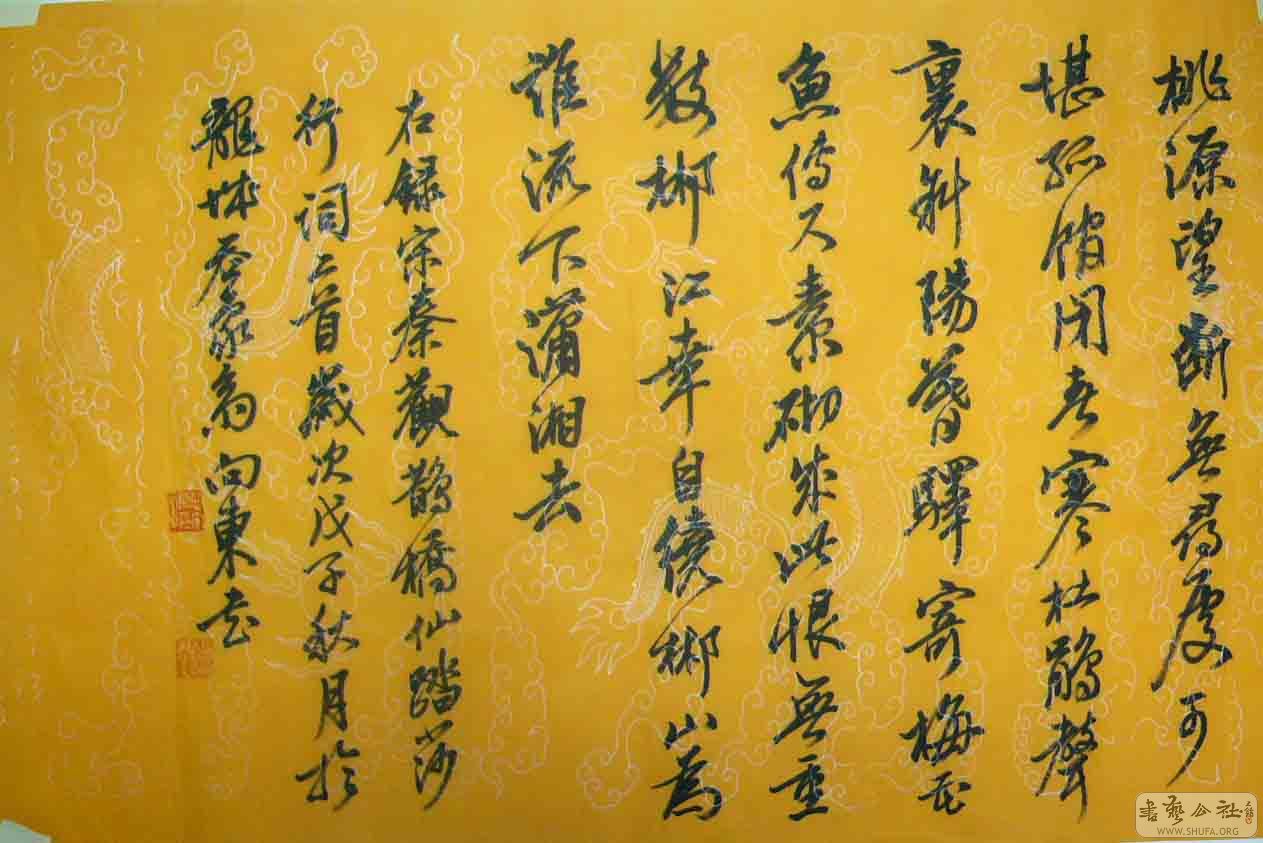 桃源望斷無尋處可
堪孤館閉春寒杜鵑聲
裏斜陽暮驛寄梅花
魚傳尺素砌成此恨無重
數郴江幸自繞郴山為
誰流下瀟湘去
右錄宋秦觀鵲橋仙踏莎
行詞二首歲次戊子秋月於
龍城向東書
書藝公社
WWW.SHUFA.ORG